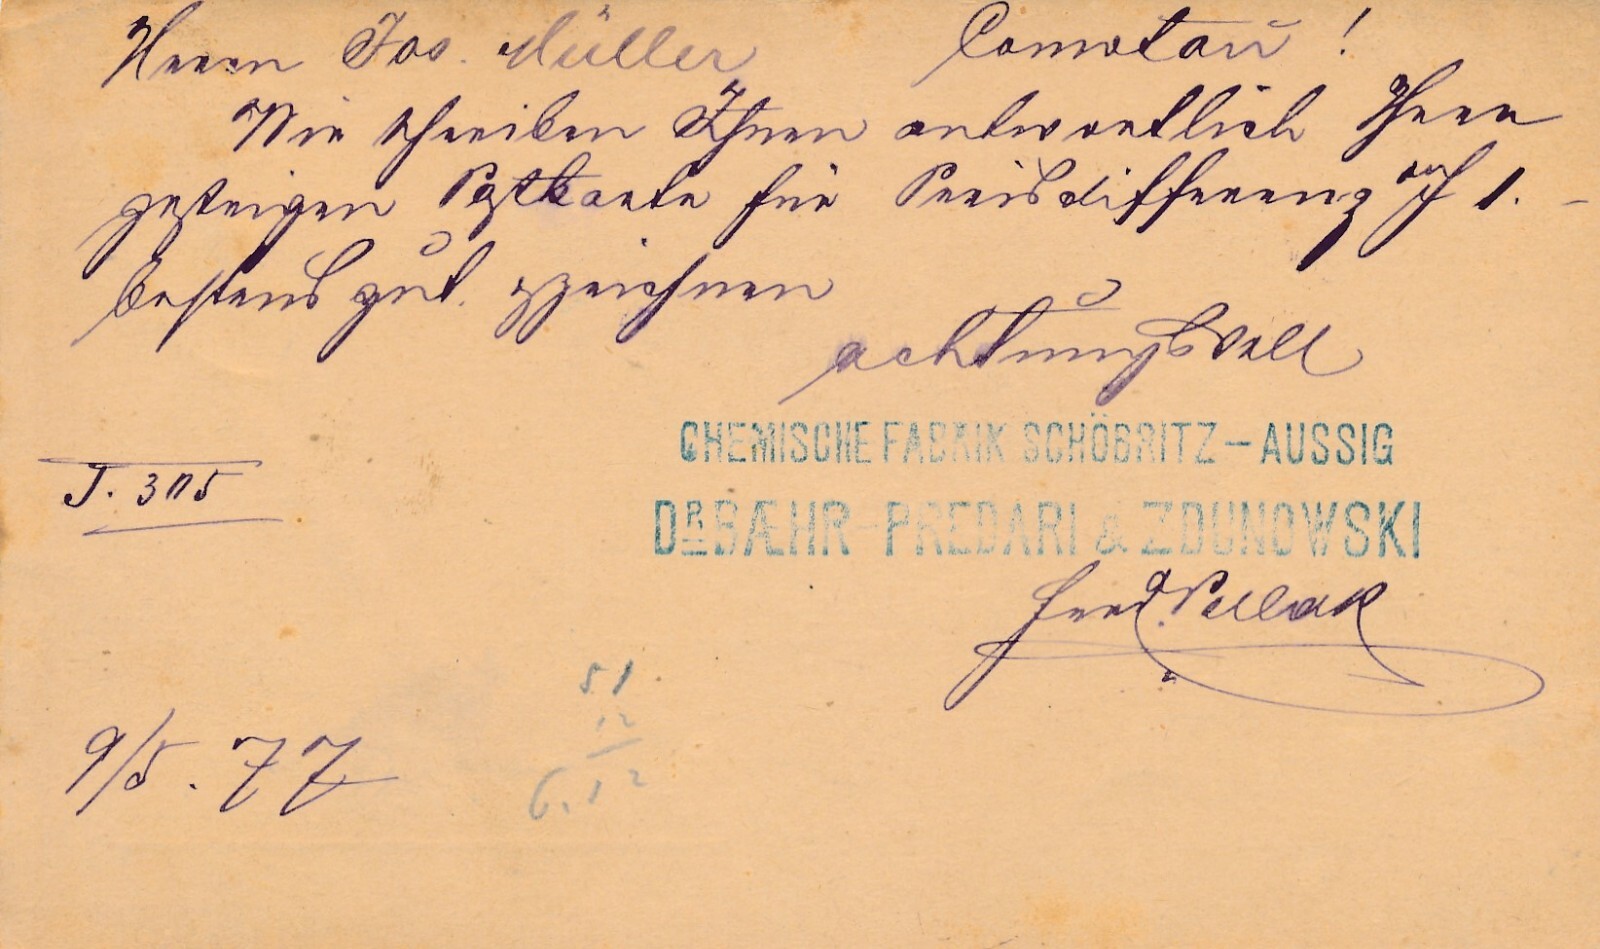 Herrn Jos. Müller Comotau!
Wir schreiben Ihnen antwortlich Ihrer
gestrigen Postkarte für Preisdifferenz f 1.–
bestens gut. zeichnen
achtungsvoll
CHEMISCHE FABRIK SCHÖBRITZ–AUSSIG
DR BÆHR-PREDARI & ZDUNOWSKI
J. 305
Ferd. Pollak
51
12
6.12
9/5. 77